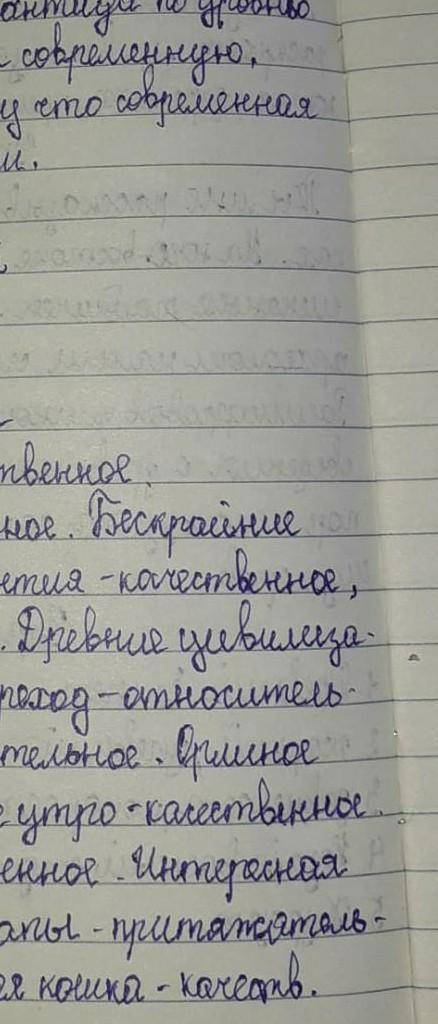 по уровню
современную,
у что современная
и.
твенное.
ное. Бескрайние
нтия - качественное,
. Древние цивилиза-
реход - относитель-
тельное. Орлиное
е утро - качественное.
енное. Интересная
апы - притяжатель-
ая кошка - качеств.